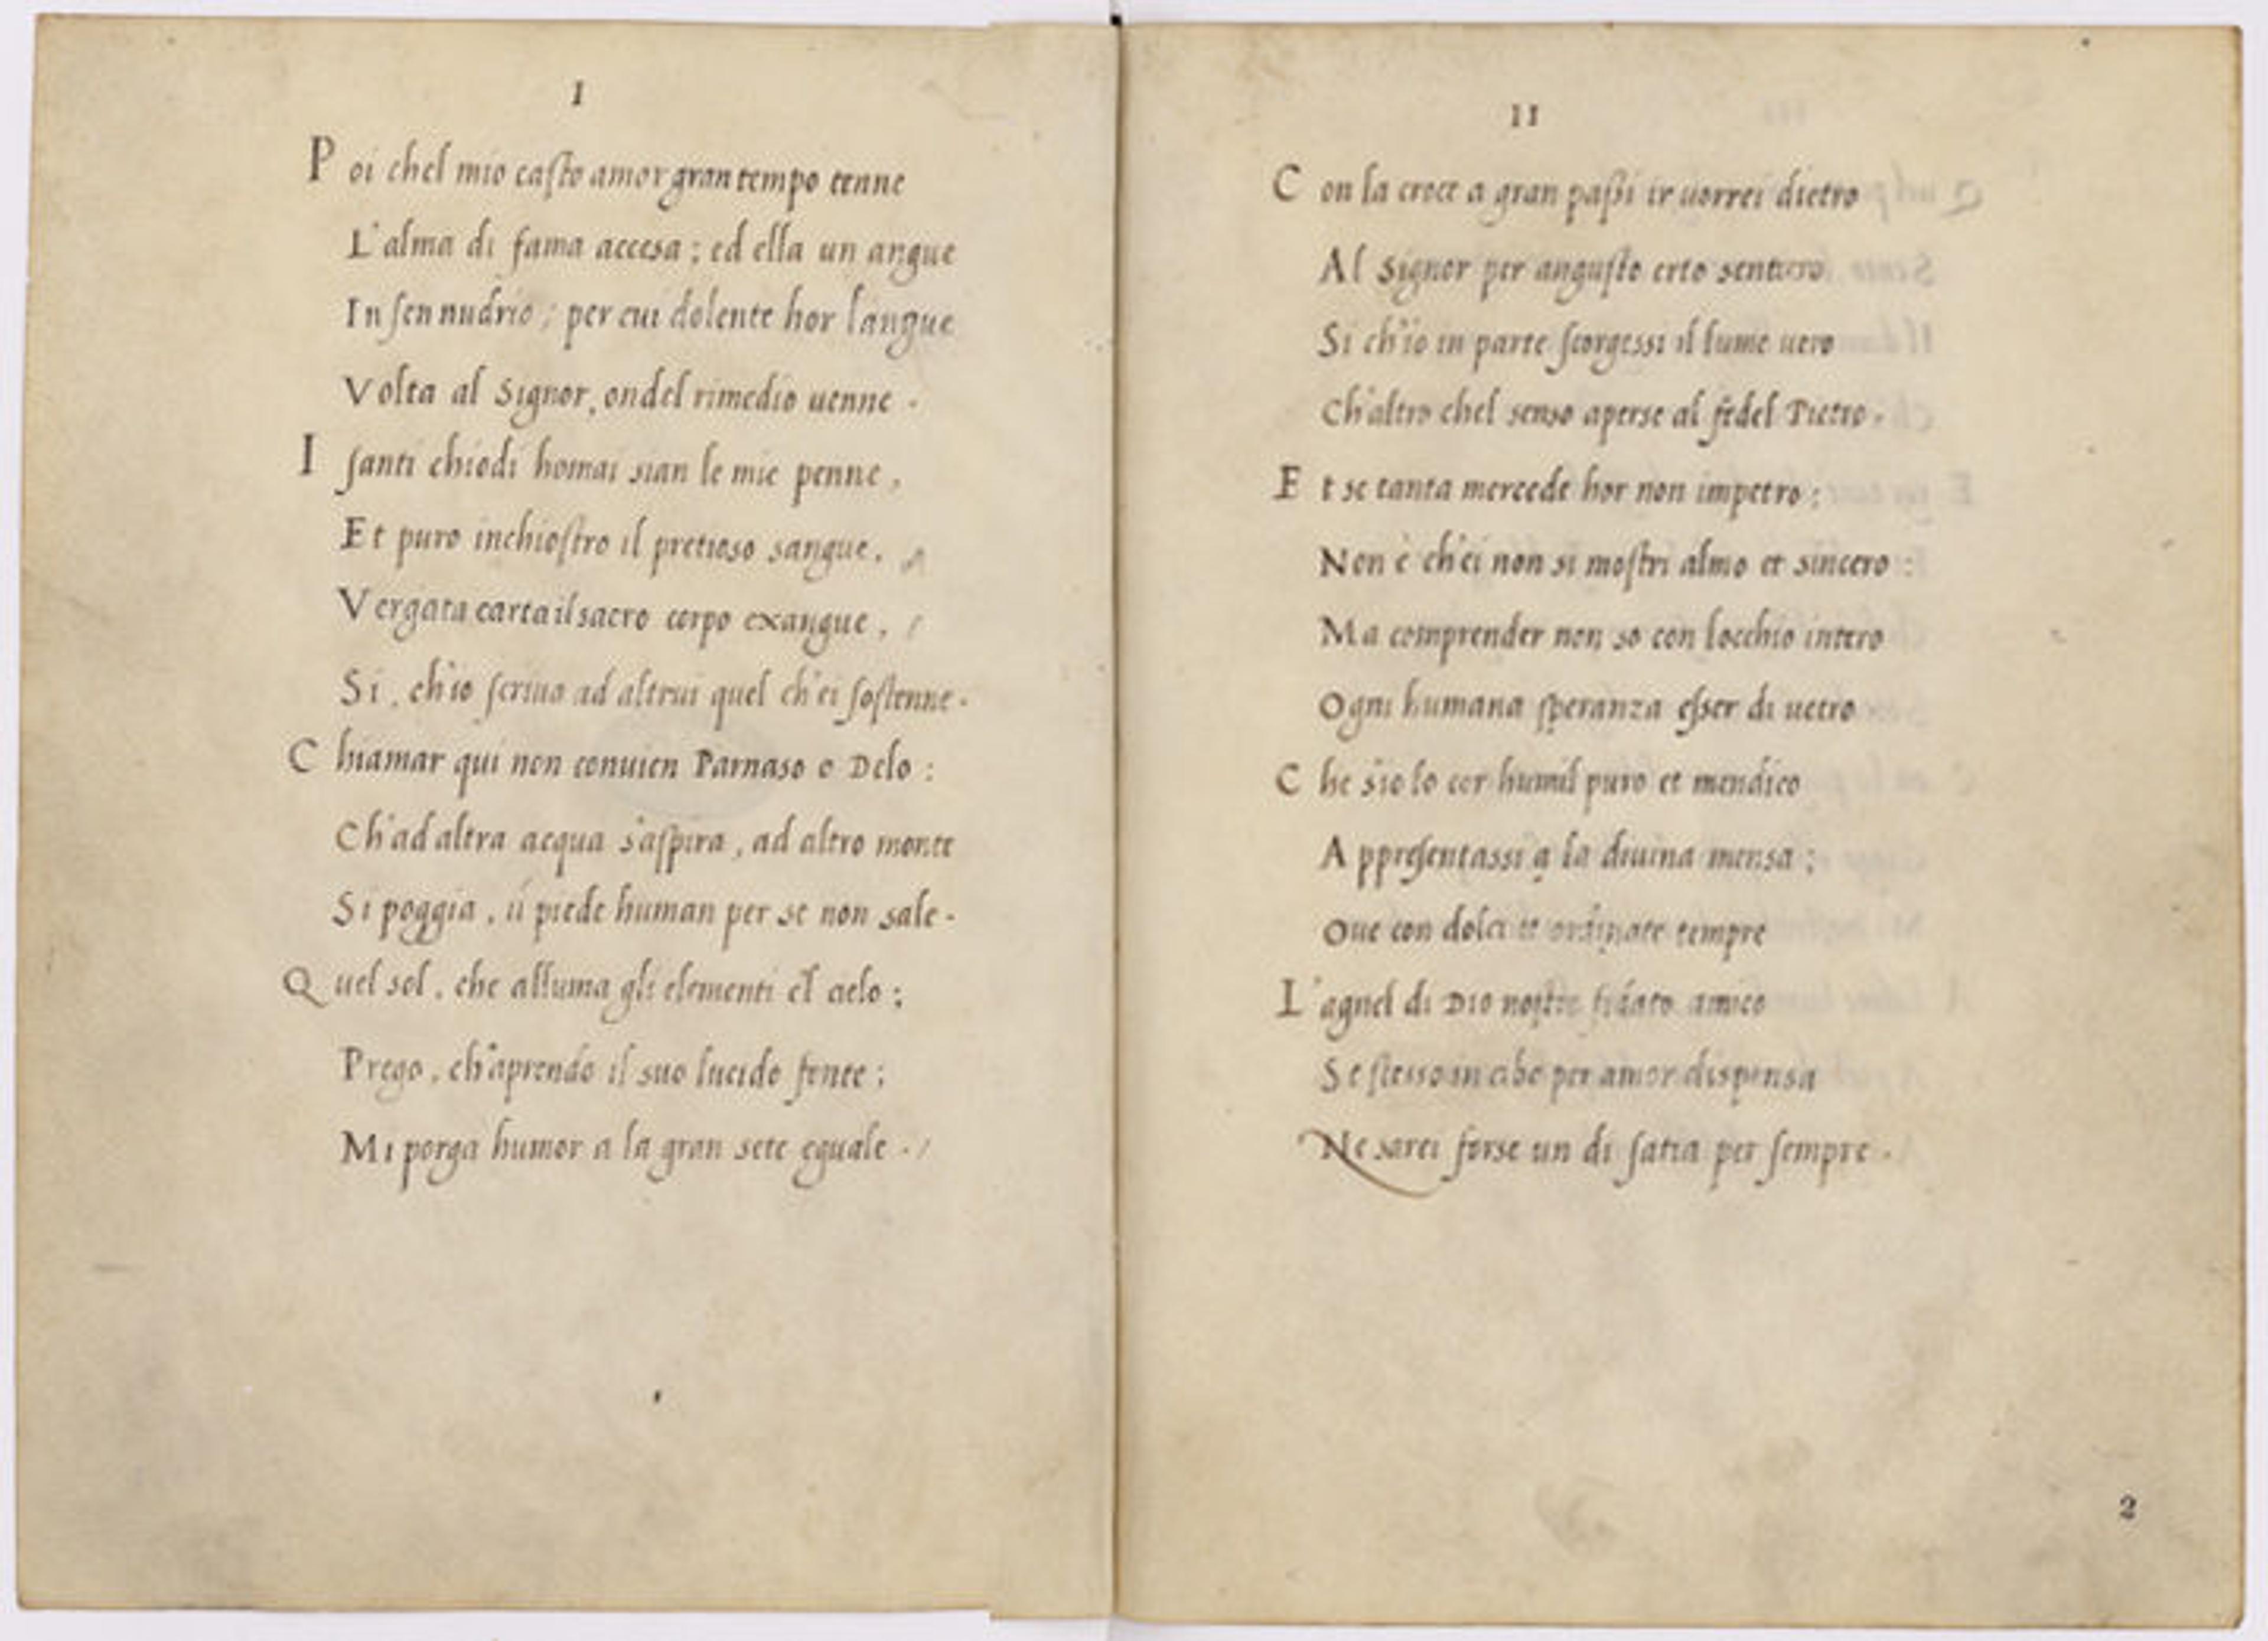 I
Poi chel mio casto amor gran tempo tenne
L'alma di fama accesa; ed ella un angue
In sen nudrio; per cui dolente hor langue
Volta al Signor, ondel rimedio uenne.
I santi chiodi homai sian le mie penne,
Et puro inchiostro il pretioso sangue,
Vergata carta il sacro corpo exangue,
Si, ch'io scriua ad altrui quel ch'ei sostenne.
Chiamar qui non conuien Parnaso o Delo:
Ch'ad altra acqua s'aspira, ad altro monte
Si poggia, ú piede human per se non sale.
Quel sol, che alluma gli elementi e'l cielo;
Prego, ch'aprendo il suo lucido fonte;
Mi porga humor a la gran sete eguale.
II
Con la croce a gran passi ir uorrei dietro
Al Signor per angusto erto sentiero
Si ch'io in parte scorgessi il lume uero
Ch'altro chel senso aperse al fedel Pietro.
Et se tanta mercede hor non impetro;
Non è ch'ei non si mostri almo et sincero:
Ma comprender non so con locchio intero
Ogni humana speranza esser di uetro
Che s'io lo cor humil puro et mendico
Appresentassi a la diuina mensa;
Oue con dolci et ordinate tempre
L'agnel di Dio nostro fidato amico
Se stesso in cibo per amor dispensa
Ne sarei forse un di satia per sempre.
2